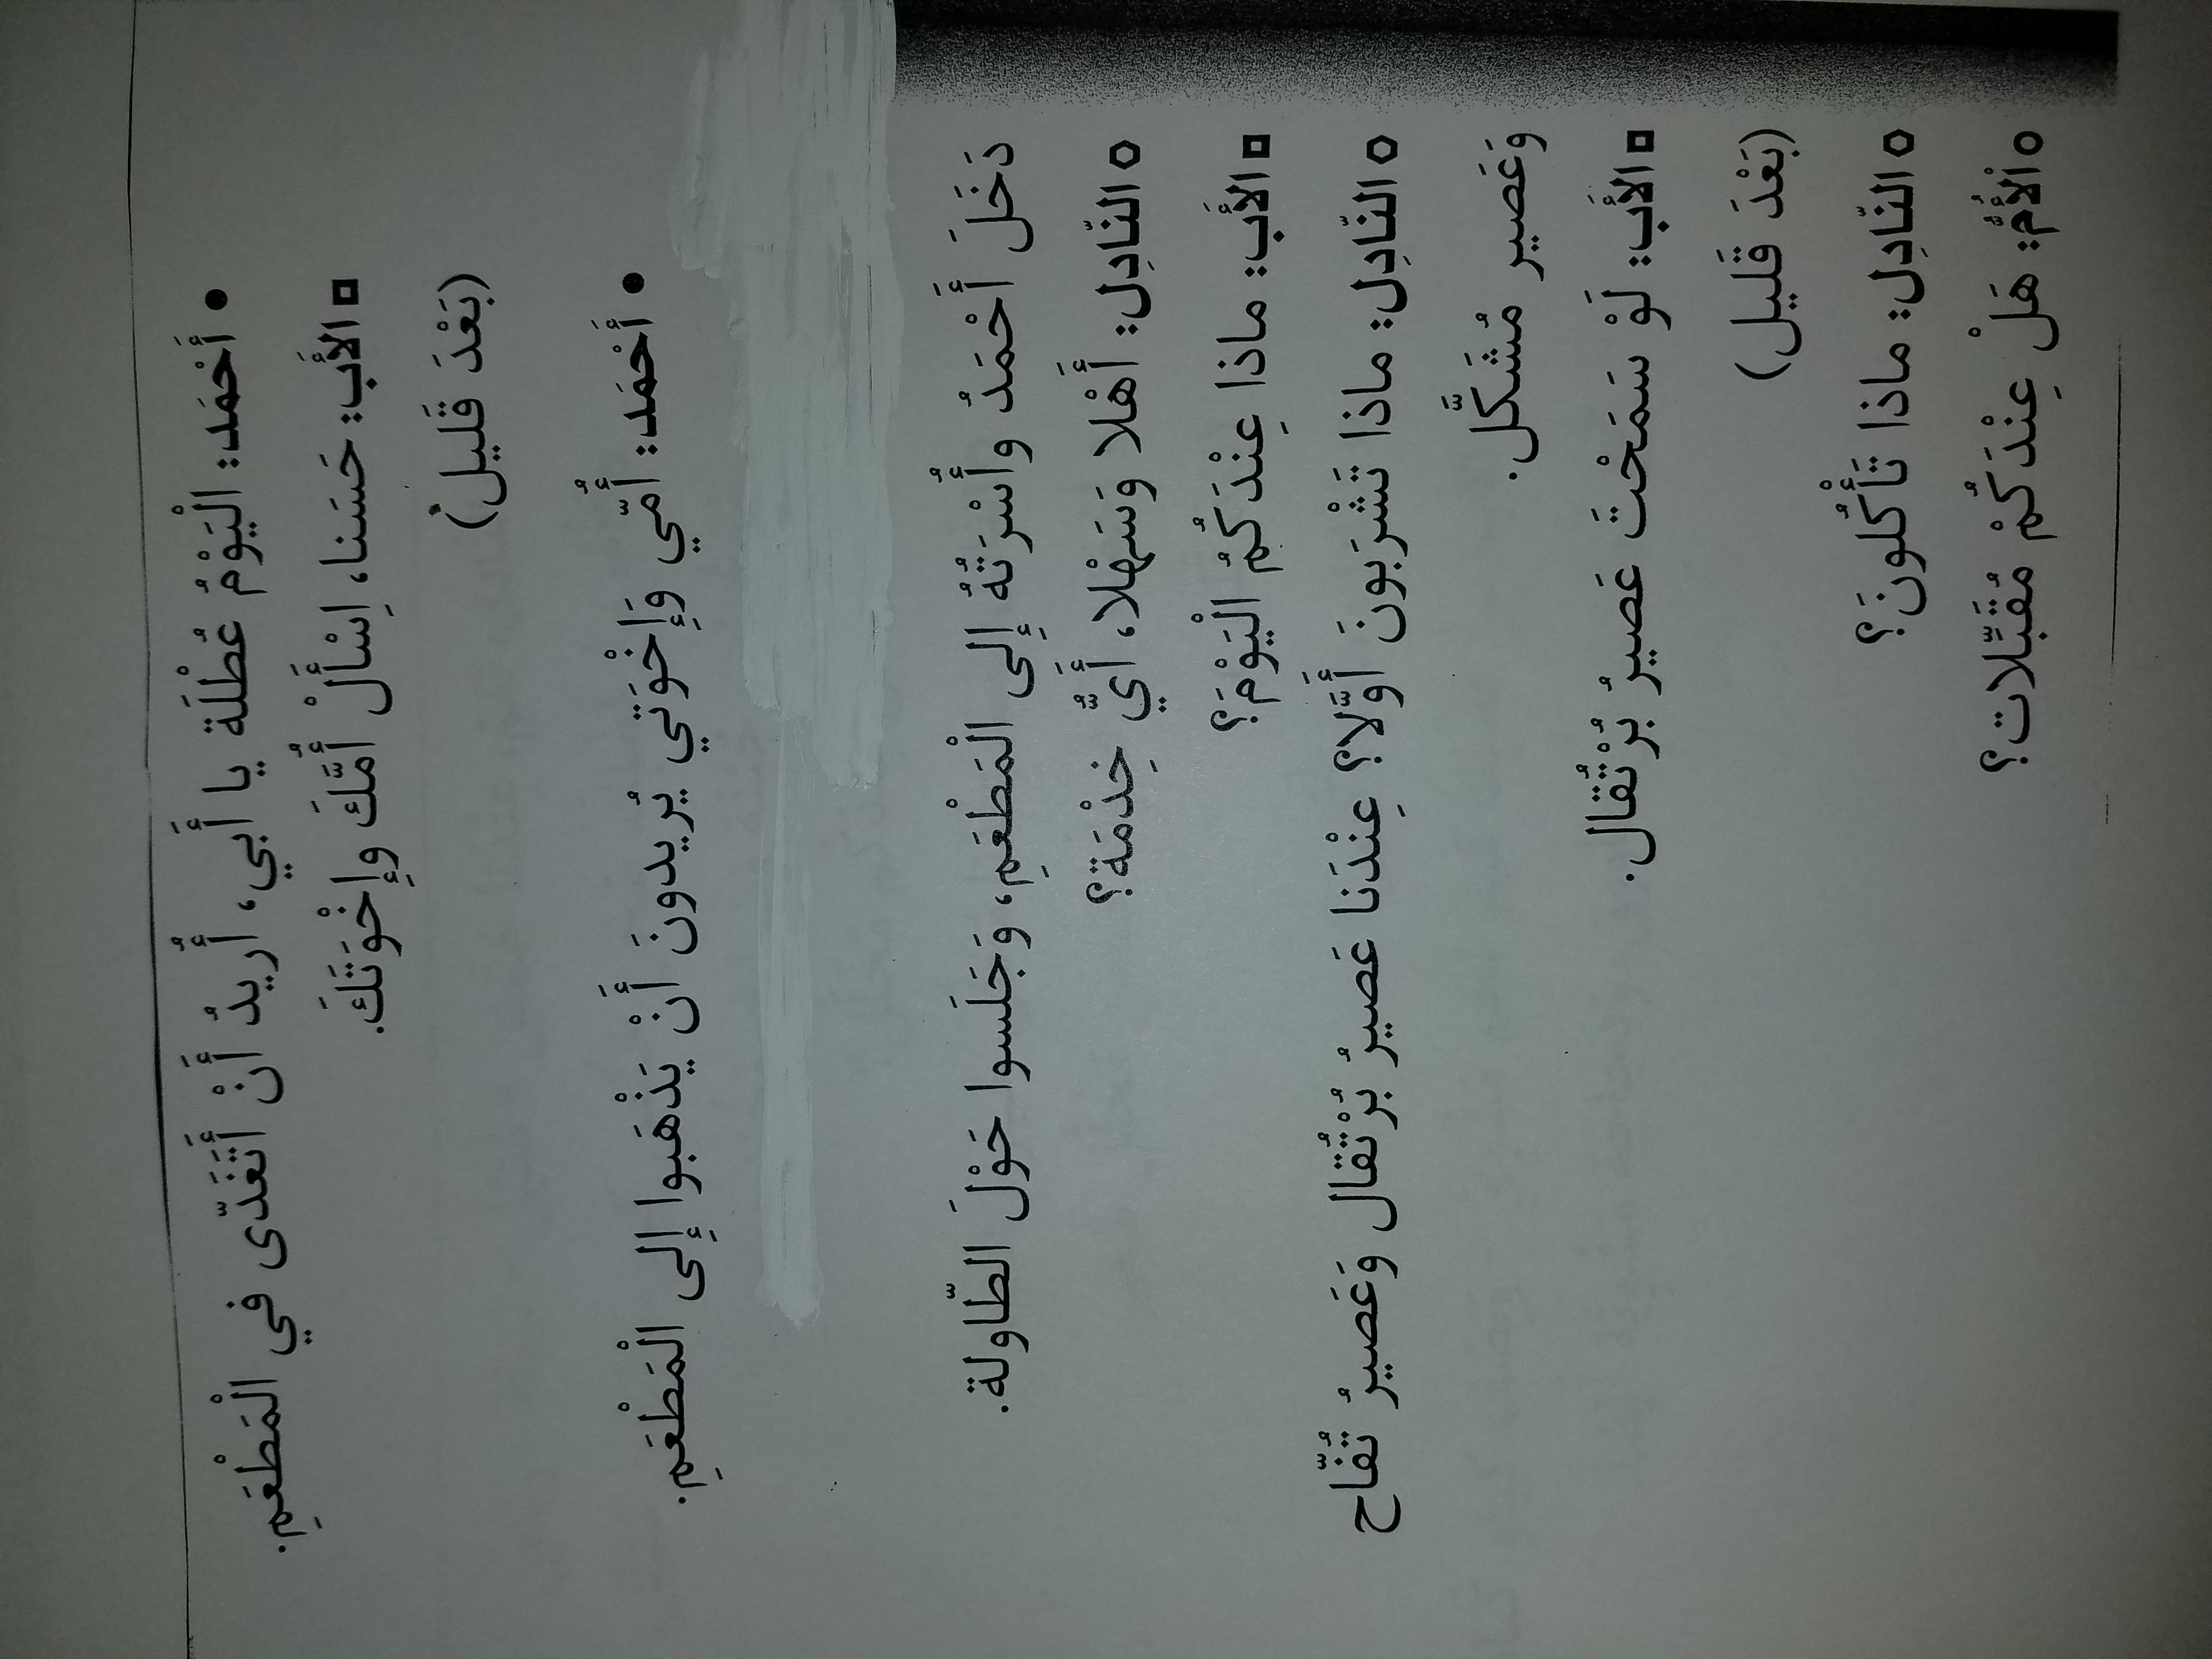 ● أَحْمَد: الْيَوْمُ عُطْلَة يا أَبي، أُريدُ أَنْ أَتَغَدّى في الْمَطْعَمِ.
◘ الأَب: حَسَنا، اِسْأَلْ أُمَّكَ وإِخْوَتَكَ.
(بَعْدَ قَليل)
● أَحْمَد: أُمّي وَإِخْوَتي يُريدونَ أَنْ يَذْهَبوا إِلى الْمَطْعَمِ.
دَخَلَ أَحْمَدُ وأُسْرَتُهُ إِلى الْمَطْعَمِ، وَجَلَسوا حَوْلَ الطّاولة.
○ النّادِل: أَهْلا وَسَهْلا، أَيُّ خِدْمَة؟
◘ الأَب: ماذا عِنْدَكُمُ الْيَوْمَ؟
○ النّادِل: ماذا تَشْرَبونَ أَوَّلا؟ عِنْدَنا عَصيرُ بُرْتُقال وَعَصيرُ تُفّاح
وَعَصير مُشَكَّل.
◘ الأَب: لَوْ سَمَحْتَ عَصيرُ بُرْتُقال.
(بَعْدَ قَليل)
○ النّادِل: ماذا تَأْكُلونَ؟
○ الْأُمُّ: هَلْ عِنْدَكُمْ مُقَبِّلَات؟